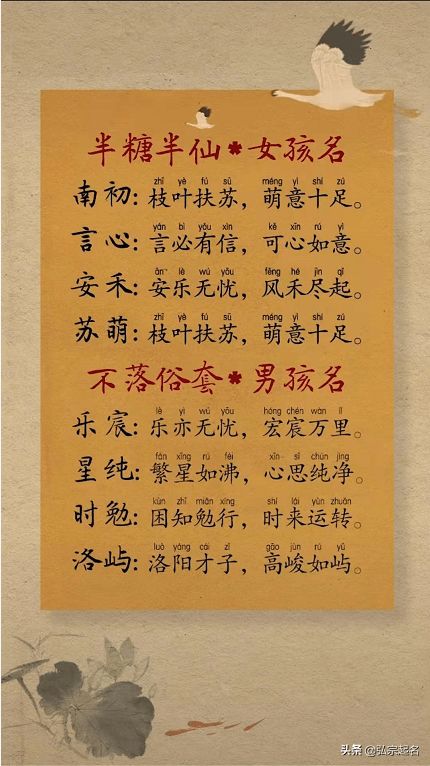 半糖半仙*女孩名
zhī yè fú sū méng yì shí zú
南初：枝叶扶苏，萌意十足。
yán bì yǒu xìn kě xīn rú yì
言心：言必有信，可心如意。
ān lè wú yōu fēng hé jìn qǐ
安禾：安乐无忧，风禾尽起。
zhī yè fú sū méng yì shí zú
苏萌：枝叶扶苏，萌意十足。
不落俗套*男孩名
lè yì wú yōu hóng chén wàn lǐ
乐宸：乐亦无忧，宏宸万里。
fán xīng rú fèi xīn sī chún jìng
星纯：繁星如沸，心思纯净。
kùn zhī miǎn xíng shí lái yùn zhuǎn
时勉：困知勉行，时来运转。
luò yáng cái zǐ gāo jùn rú yǔ
洛屿：洛阳才子，高峻如屿。
头条 @弘宗起名